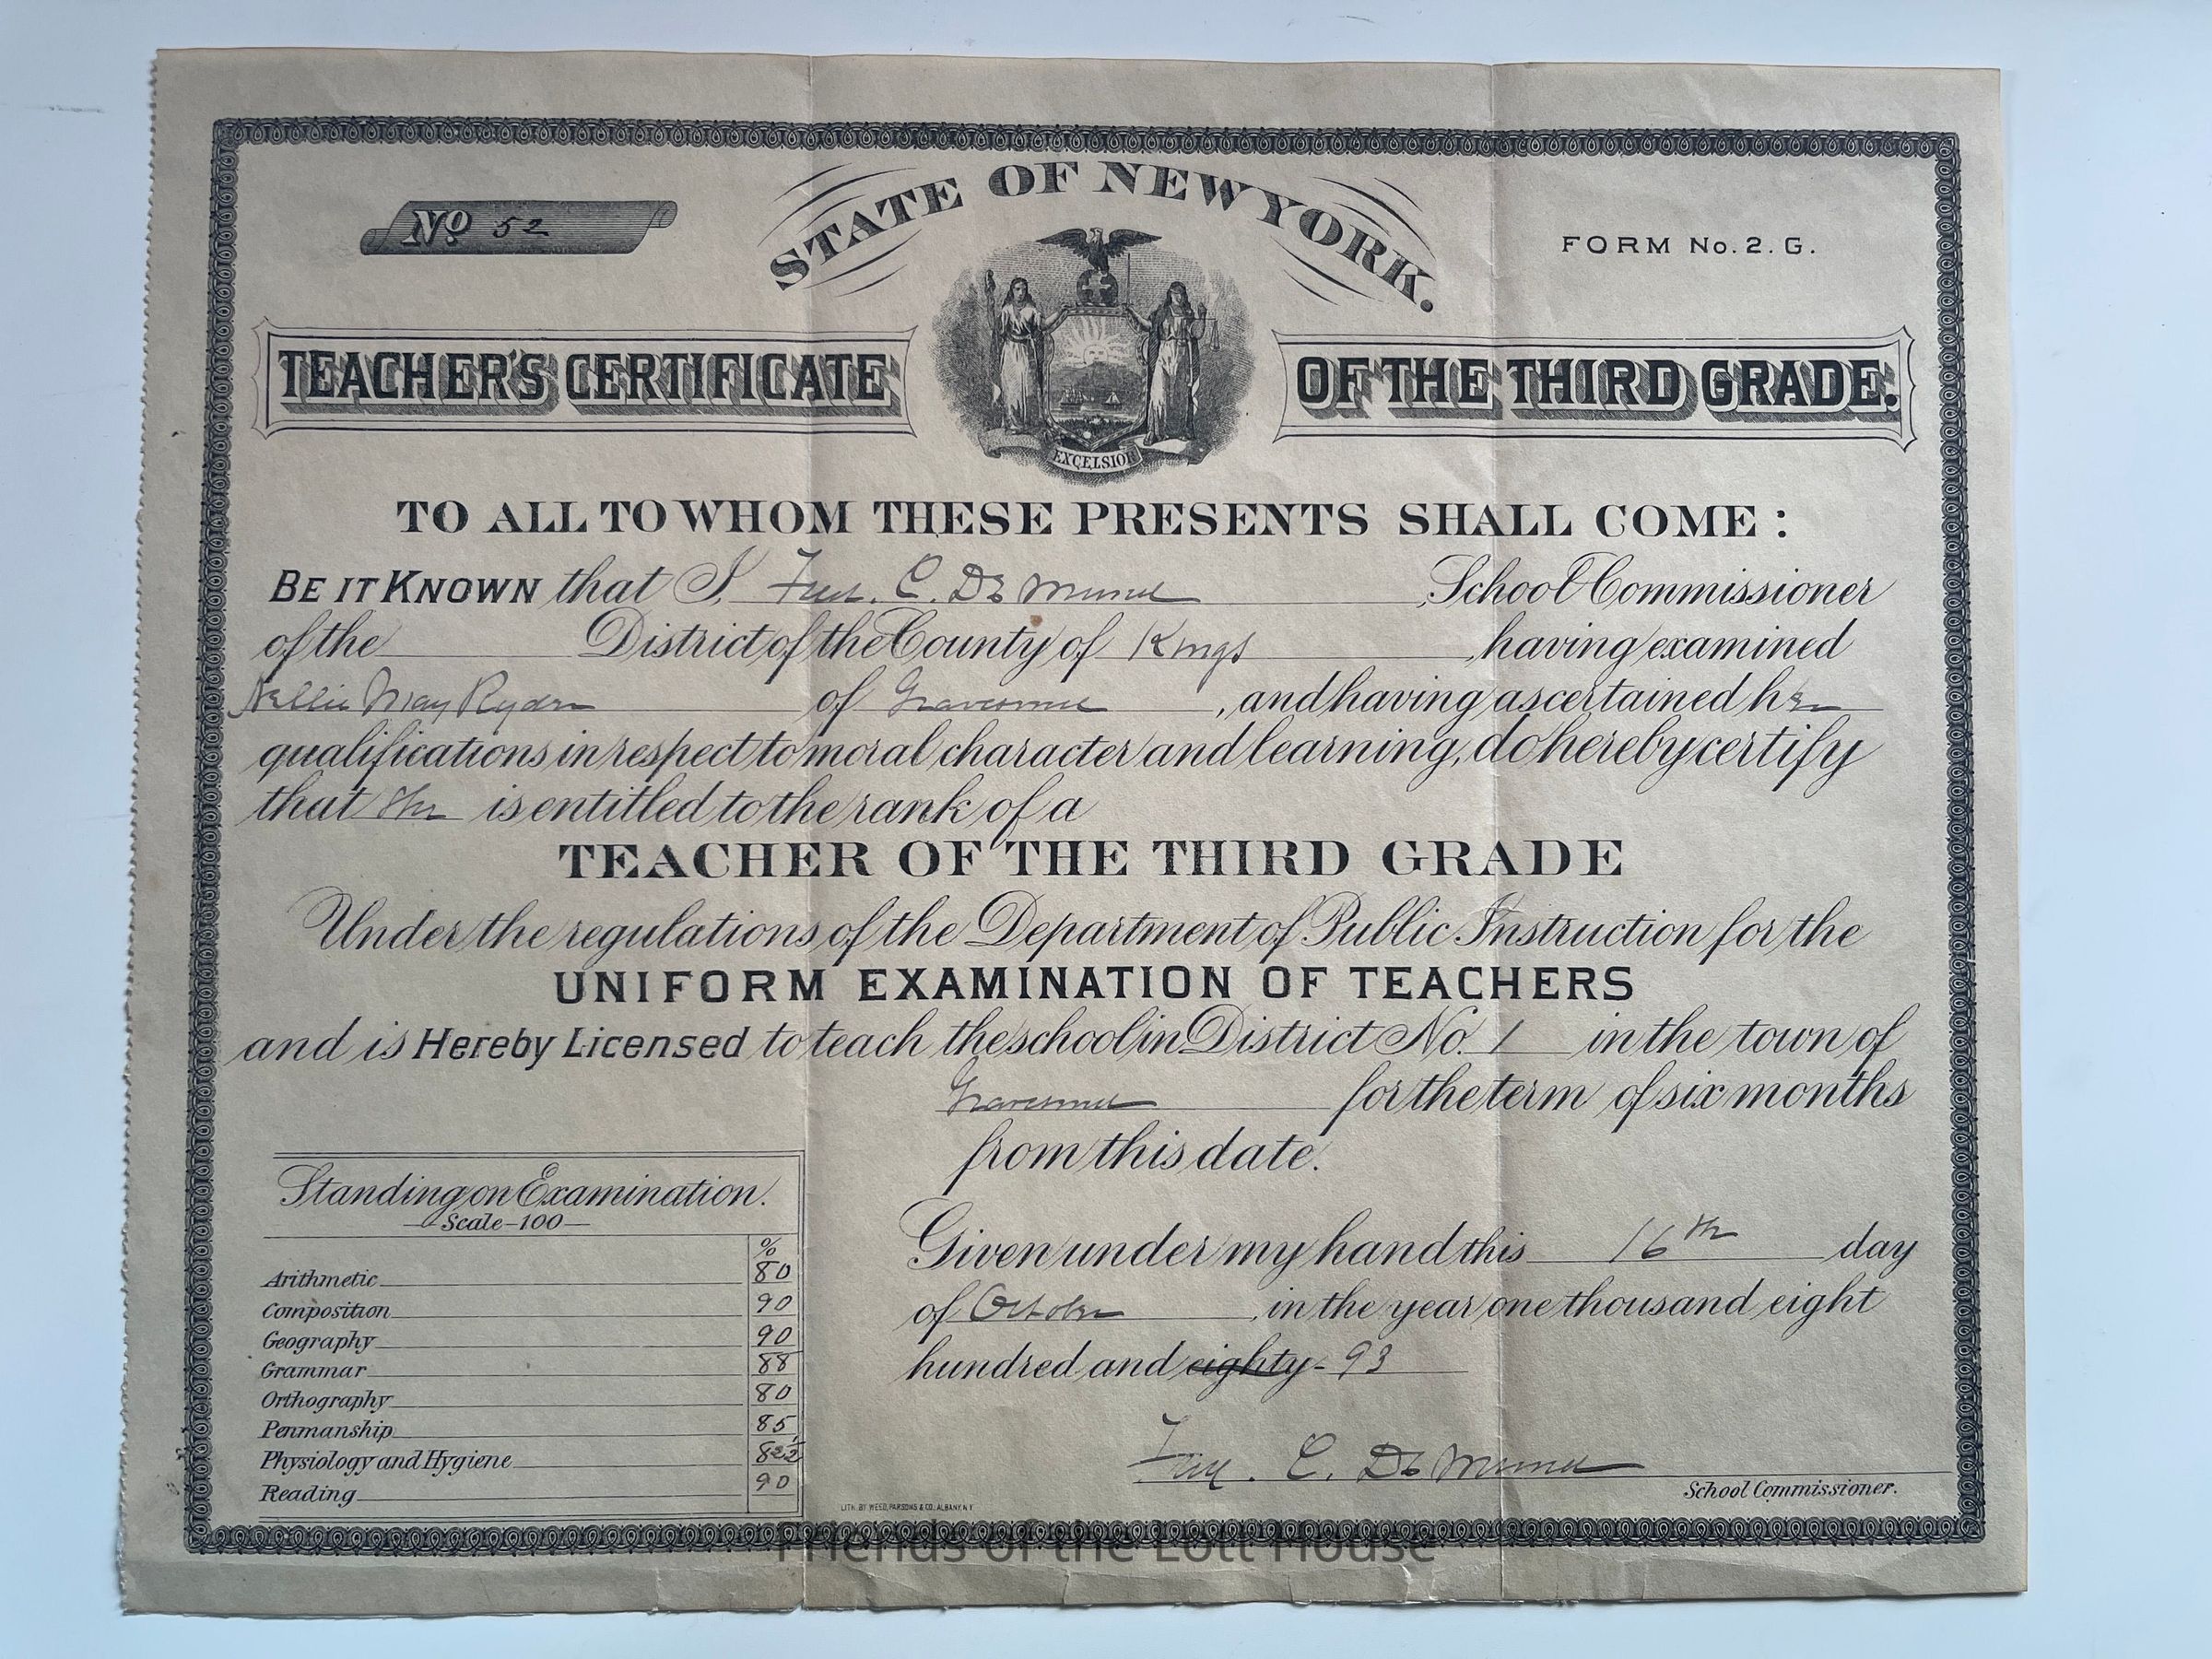 No 52
STATE OF NEW YORK.
FORM No. 2. G.
TEACHER'S CERTIFICATE OF THE THIRD GRADE.
EXCELSIOR
TO ALL TO WHOM THESE PRESENTS SHALL COME :
BE IT KNOWN that I, C. De Mund School Commissioner
of the District of the County of Kings, having examined
Nellie May Ryder of Gravesend, and having ascertained her
qualifications in respect to moral character and learning, do hereby certify
that she is entitled to the rank of a
TEACHER OF THE THIRD GRADE
Under the regulations of the Department of Public Instruction for the
UNIFORM EXAMINATION OF TEACHERS
and is Hereby Licensed to teach the school in District No. 1 in the town of
Gravesend for the term of six months
from this date.
Standing on Examination.
Scale-100
%
Arithmetic 80
Composition 90
Geography 90
Grammar 88
Orthography 80
Penmanship 85
Physiology and Hygiene 82½
Reading 90
Given under my hand this 16th day
of October, in the year one thousand eight
hundred and eighty- 93
C. De Mund
School Commissioner.
LITH. BY WEED, PARSONS & CO. ALBANY, N.Y.
Friends of the Lott House